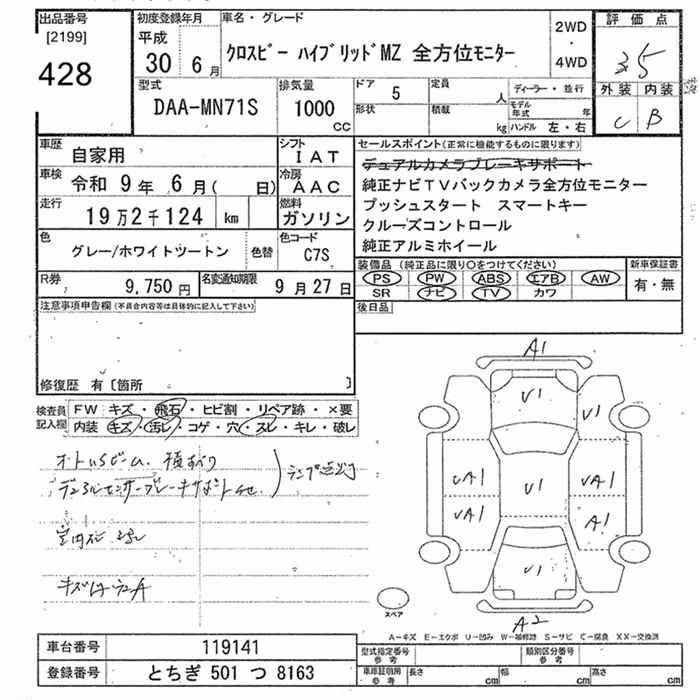 出品番号 初度登録年月 車名・グレード 評価点
[2199] 平成 2WD
428 30 6月 クロスビー ハイブリッドMZ 全方位モニター ・ 3.5
4WD
型式 排気量 ドア 5 定員 人 ディーラー・並行 外装 内装
DAA-MN71S 1000 CC 形状 積載 kg モデル年式 年 C B
ハンドル 左・右
車歴 自家用 シフト IAT セールスポイント(正常に機能するものに限ります)
デュアルカメラブレーキサポート
車検 令和 9年 6月( 日) 冷房 AAC 純正ナビTVバックカメラ全方位モニター
走行 19万2千124 km 燃料 ガソリン プッシュスタート スマートキー
クルーズコントロール
色 グレー/ホワイトツートン 色替 色コード C7S 純正アルミホイール
装備品(純正品に限り○をつけてください) 新車保証書
R券 9,750円 名変通知期限 9月27日 PS PW ABS エアB AW 有・無
SR ナビ TV カワ
注意事項申告欄(不具合内容等は具体的に記入して下さい) 後日品
修復歴 有〔箇所 〕
検査員記入欄 FW キズ・飛石・ヒビ割・リペア跡・×要
内装 キズ・汚レ・コゲ・穴・スレ・キレ・破レ
A1
U1
U1
UA1 U1 UA1
UA1 A1
U1
A2
スペア
A-キズ E-エクボ U-凹み W-補修跡 S-サビ C-腐食 XX-交換済
車台番号 119141 型式指定番号 参考 類別区分番号 参考
登録番号 とちぎ 501 つ 8163 車庫証明用 参考 長さ cm 幅 cm 高さ cm